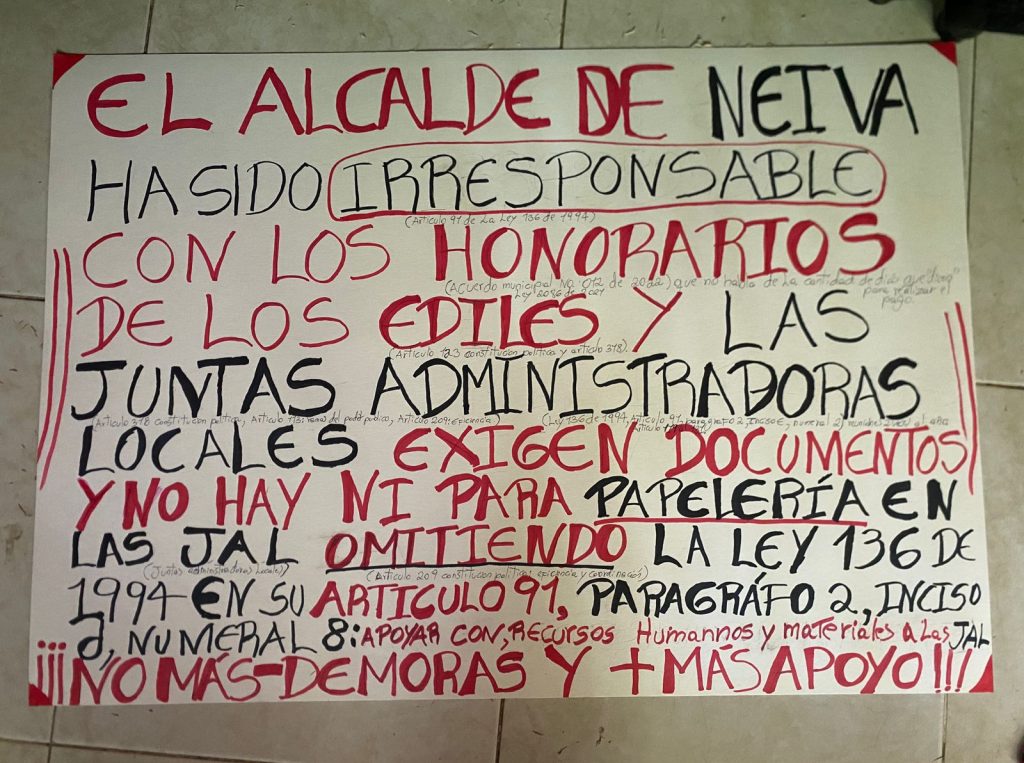 EL ALCALDE DE NEIVA
HA SIDO IRRESPONSABLE
(Artículo 91 de La Ley 136 de 1994)
CON LOS HONORARIOS
(Acuerdo municipal No. 012 de 2022) que no habla de la cantidad de días que
Ley 2086 de 2021
para realizar el
pago.
DE LOS EDILES Y LAS
(Artículo 123 constitucion politica y artículo 318).
JUNTAS ADMINISTRADORAS
(Artículo 318 constitucion politica, Artículo 113: ramas del poder publico, Artículo 209: eficiencia)
(Ley 136 de 1994, Artículo 91, paragrafo 2, inciso E, numeral 2) al año
LOCALES EXIGEN DOCUMENTOS
Y NO HAY NI PARA PAPELERÍA EN
LAS JAL OMITIENDO LA LEY 136 DE
(Juntas administradoras Locales)
(Artículo 209 constitucion politica: eficiencia y coordinación)
1994 EN SU ARTICULO 91, PARAGRÁFO 2, INCISO
d, NUMERAL 8: APOYAR CON; RECURSOS Humannos y materiales a Las JAL
¡¡¡NO MÁS-DEMORAS Y + MÁS APOYO!!!